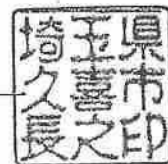 埼玉県
久喜市
長之印